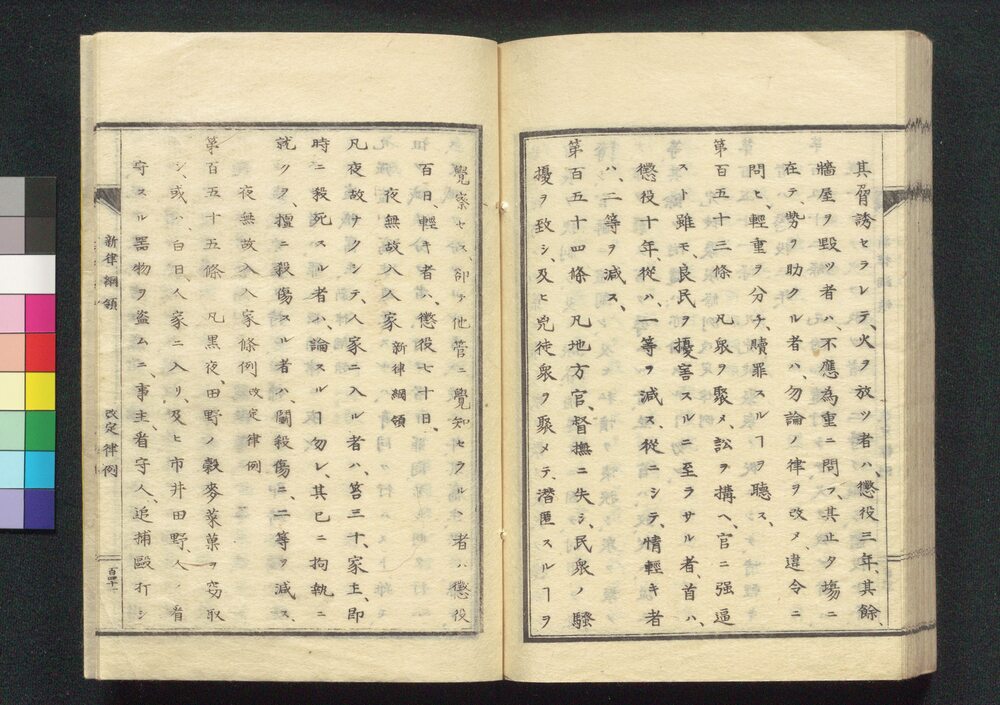 其脅誘セラレテ、火ヲ放ツ者ハ、懲役三年、其餘、
牆屋ヲ毀ツ者ハ、不應為重ニ問フ、其止タ塲ニ
在テ勢ヲ助クル者ハ、勿論ノ律ヲ改メ、違令ニ
問ヒ、輕重ヲ分チ、贖罪スルヿヲ聽ス、
第百五十三條 凡衆ヲ聚メ、訟ヲ搆ヘ、官ニ強逼
スト雖モ、良民ヲ擾害スルニ至ラサル者、首ハ、
懲役十年、從ハ、一等ヲ減ス、從ニシテ、情輕キ者
ハ、二等ヲ減ス、
第百五十四條 凡地方官、督撫ニ失シ、民衆ノ騒
擾ヲ致シ、及ヒ兇徒衆ヲ聚メテ、潜匿スルヿヲ
覺察セス、却テ他管ニ覺知セラルヽ者ハ懲役
百日、輕キ者ハ、懲役七十日、
夜無故入人家 新律綱領
凡夜故ナクシテ、人家ニ入ル者ハ、笞三十、家主、即
時ニ殺死スル者ハ、論スル勿レ、其已ニ拘執ニ
就クヲ、擅ニ殺傷スル者ハ、鬪殺傷ニ、二等ヲ減ス、
夜無故入人家條例 改定律例
第百五十五條 凡黒夜、田野ノ穀麥菜菓ヲ窃取
シ、或ハ、白日、人家ニ入リ、及ヒ市井田野、人ノ看
守スル器物ヲ盗ムニ、事主、看守人、追捕毆打シ
新律綱領 改定律例
百四十一